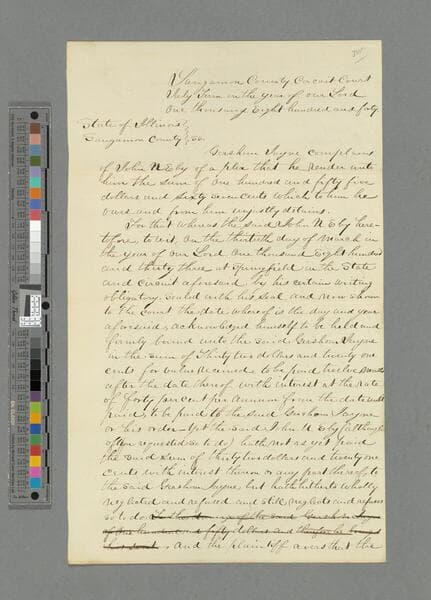 Sangamon County Circuit Court
July Term in the year of our Lord
One thousand Eight hundred and forty
State of Illinois
Sangamon County ss.
Gershom Jayne complains
of John N Eby of a plea that he render unto
him the sum of One hundred and fifty five
dollars and sixty cents which to him he
owes and from him unjustly detains.
For that whereas the said John N Eby here-
tofore, to wit, On the thirtieth day of March in
the year of our Lord One thousand Eight hundred
and thirty three at Springfield in the State
and circuit aforesaid by his certain writing
obligatory sealed with his seal and now shown
to the court the date whereof is the day and year
aforesaid, acknowledged himself to be held and
firmly bound unto the said Gershom Jayne
in the sum of Thirty two dollars and twenty one
cents for value received to be paid twelve months
after the date thereof with interest at the rate
of forty per cent per annum from the date until
paid, to be paid to the said Gershom Jayne
or his order. Yet the said John N Eby (although
often requested so to do) hath not as yet paid
the said sum of thirty two dollars and twenty one
cents with interest thereon or any part thereof, to
the said Gershom Jayne, but hath hitherto wholly
neglected and refused and still neglects and refuses
so to do. To the damage of the said Gershom Jayne
of One hundred and fifty dollars and therefore he brings
his suit. And the plaintiff avers that the